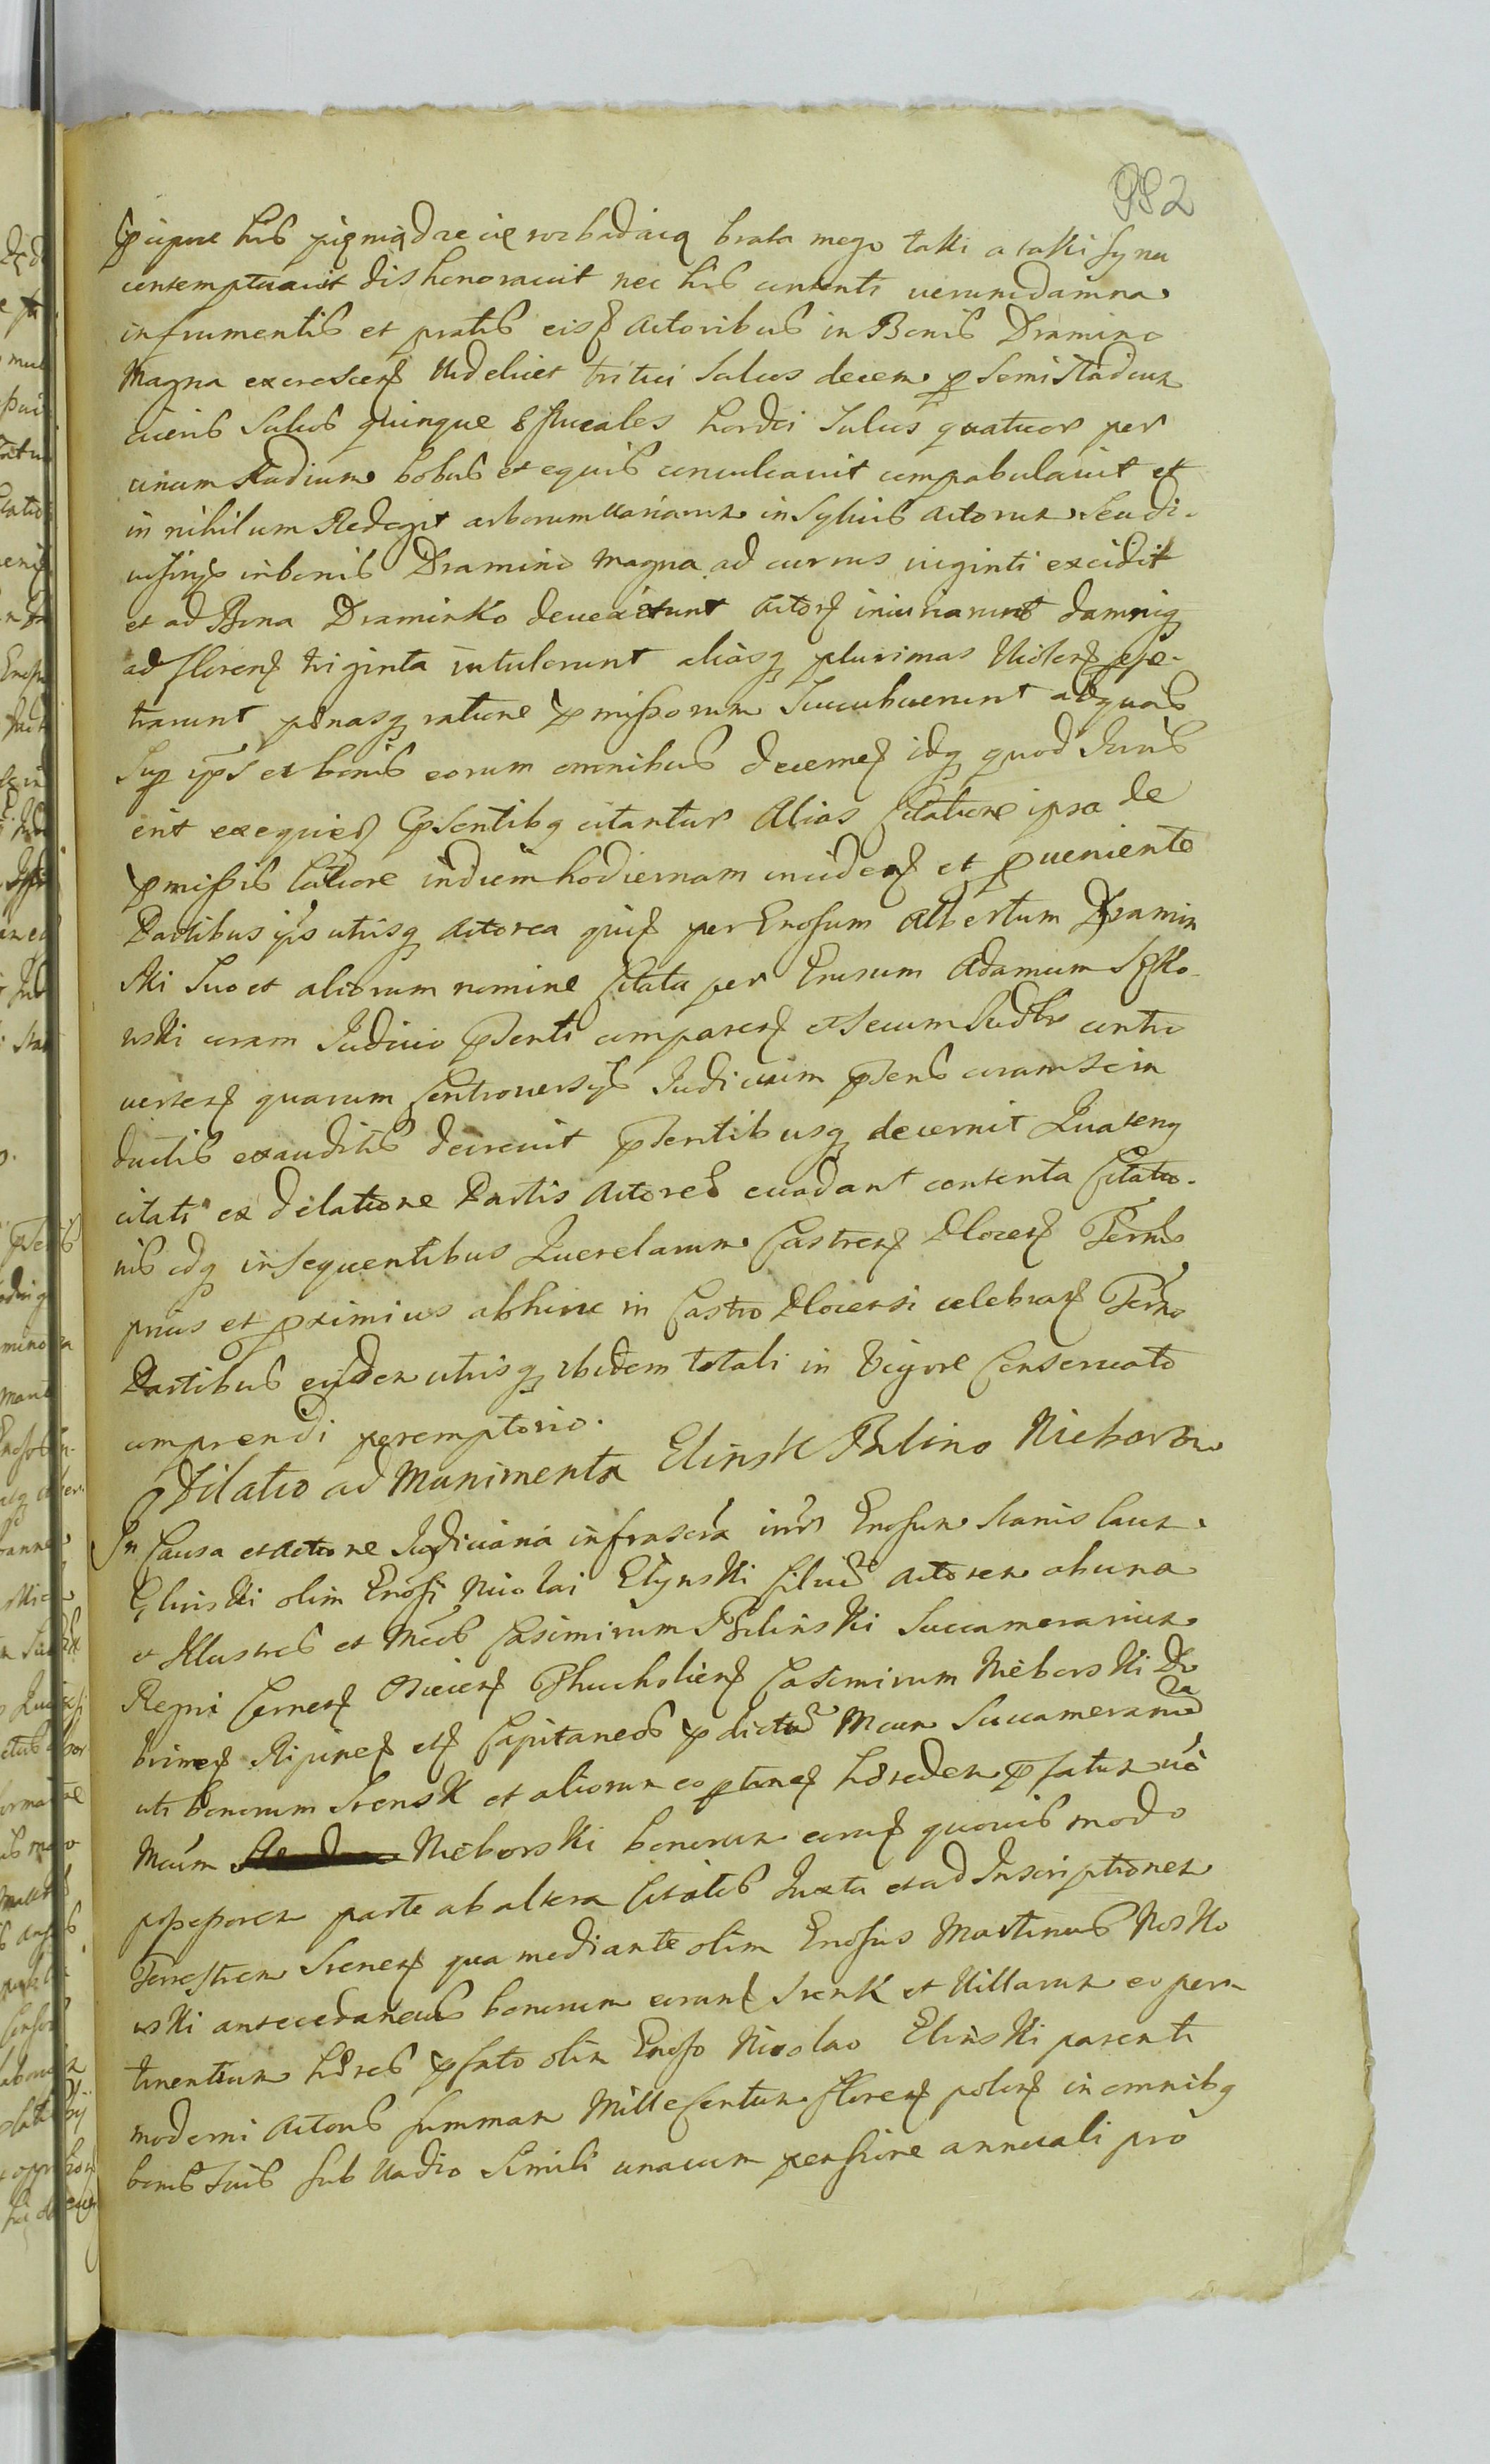 992
his pieniądze cię rozbadaią brata mego taki a taki synu
contemptuauit dishonorauit nec his contenti uerum damna
in frumentis et pratis eisq Actoribus in Bonis Dramino
Magna excrescenq Videlicet tritici Sulcos decem p semi stadium
ciceris Sulcos quinque hordei Sulcos quatuor per
unum Stadium bobus et equis conculcauit compabulauit et
in nihilum Redegit arborum uariarum in Syluis Actorum seu di-
in bonis Dramino Magna ad currus uiginti excidit
et ad Bona Draminko deuexerunt Actores iniuriarunt damniq
ad florenq triginta intulerunt aliasq plurimas Violenq ppe-
trarunt penasq ratione pmissorum Succubuerunt ad quas
sup ipsis et bonis eorum omnibus decernenq idq quod Juris
erit exequienq psentibq citantur Alias Citatione ipsa de
pmissis latiore in diem hodiernam incidenq et pueniente
Partibus ipsis utrisq Actorea quiq per Gnosum Albertum Dramin
ski Suo et aliorum nomine Citata per Gnosum Adamum
wski coram Judicio psenti comparenq et Secum contro
uertenq quarum Controuersys Judicium psens coram se in
ductis exauditis decreuit psentibusq decernit Quatenq
citati ex delatione Partis Actorea euadant contenta Citatio-
nis idq in sequentibus Querelarum Castrenq Plocenq Termis
prius et pximius abhinc in Castro Plocensi celebranq Termo
Partibus eisdem utrisq ibidem totali in Vigore Conseruato
comprendi peremptorio.
Dilatio ad Munimenta Elinsk Bilino Nieborsm
In Causa et Actione Judiciaria infrascra intr Gnosum Stanislaum
Glinski olim Gnosi Nicolai Elynski filium Actorem ab una
et Illustres et Mcos Casimirum Bilinski Succamerarium
Regni Cernenq Osiecenq Casimirum Nieborski Do
brinenq Ripinenq etq Capitaneos pdictum Mcum Succamerarium
uti bonorum Srensk et aliorum eo ptinenq hæredem pfatum uo
Mcum Nieborski bonorum eorunq quouis modo
possessorem parte ab altera Citatos Juxta et ad Inscriptionem
Terrestrem Srenenq qua mediante olim Gnosus Martinus Nosko
wski antecedaneus bonorum eorunq Srensk et Villarum eo perti-
tinentium hæres pfato olim Gnoso Nicolao Elinski parenti
moderni Actoris summam Mille Centum florenq polonq in omnibq
bonis suis sub Vadio Simili unacum pensione annuali pro